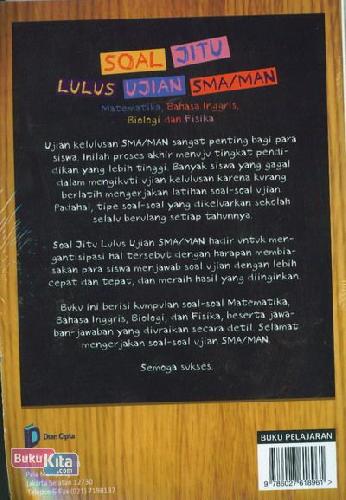 SOAL JITU
LULUS UJIAN SMA/MAN
Matematika, Bahasa Inggris,
Biologi dan Fisika
Ujian kelulusan SMA/MAN sangat penting bagi para
siswa. Inilah proses akhir menuju tingkat pendi-
dikan yang lebih tinggi. Banyak siswa yang gagal
dalam mengikuti ujian kelulusan karena kurang
berlatih mengerjakan latihan soal-soal ujian.
Padahal, tipe soal-soal yang dikeluarkan sekolah
selalu berulang setiap tahunnya.
Soal Jitu Lulus Ujian SMA/MAN hadir untuk men-
gantisipasi hal tersebut dengan harapan membia-
sakan para siswa menjawab soal ujian dengan lebih
cepat dan tepat, dan meraih hasil yang diinginkan.
Buku ini berisi kumpulan soal-soal Matematika,
Bahasa Inggris, Biologi, dan Fisika, beserta jawa-
ban-jawaban yang diuraikan secara detil. Selamat
mengerjakan soal-soal ujian SMA/MAN.
Semoga sukses.
BUKU PELAJARAN
Dian Cipta
BukuKita.com
Jakarta Selatan 12730